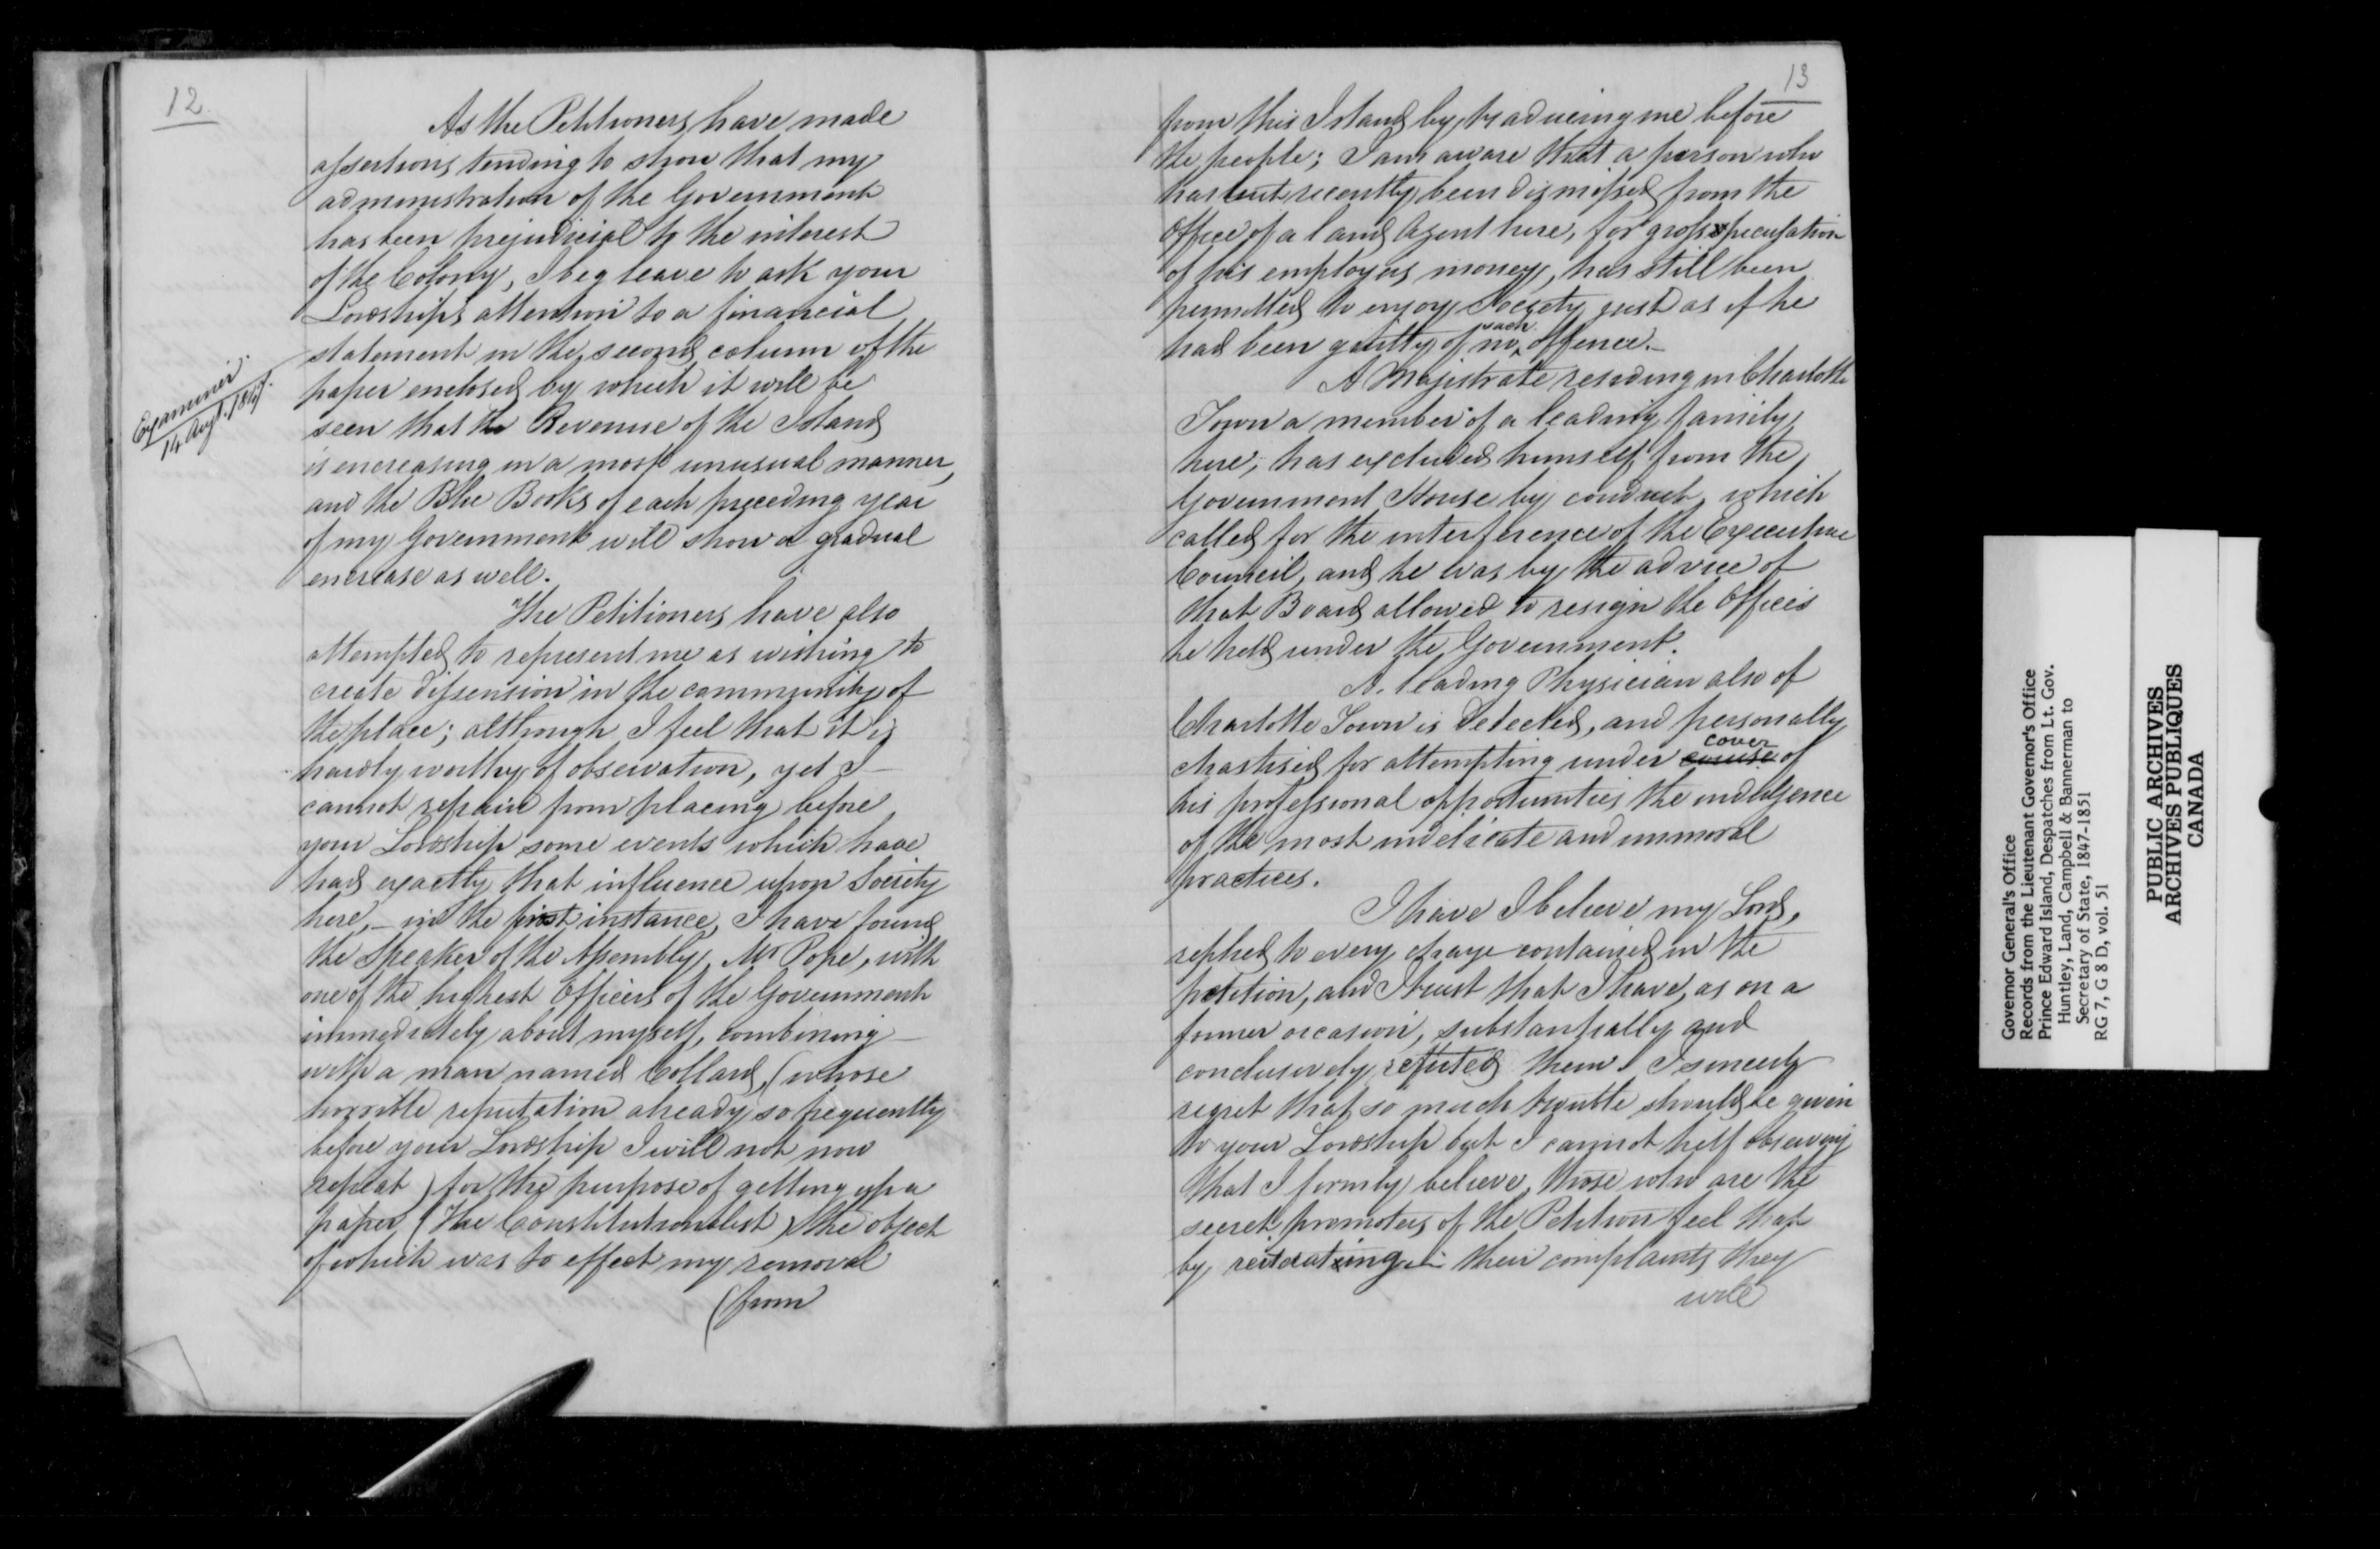 12.
As the Petitioners have made
assertions tending to show that my
administration of the Government
has been prejudicial to the interest
of the Colony, I beg leave to ask your
Lordship's attention to a financial
statement in the second column of the
Examiner.
14 Augt. 1847.
paper enclosed by which it will be
seen that the Revenue of the Island
is encreasing in a most unusual manner,
and the Blue Books of each preceding year
of my Government will show a gradual
encrease as well.
The Petitioners have also
attempted to represent me as wishing to
create dissension in the community of
the place; although I feel that it is
hardly worthy of observation, yet I
cannot refrain from placing before
your Lordship some events which have
had exactly that influence upon Society
here,- in the first instance, I have found
the Speaker of the Assembly, Mr Pope, with
one of the highest Officers of the Government
immediately about myself, combining
with a man named Collard, (whose
horrible reputation already so frequently
before your Lordship I will not now
repeat) for the purpose of getting up a
paper (The Constitutionalist) the object
of which was to effect my removal
(from
13
from this Island by traducing me before
the people; I am aware that a person who
has but recently been dismissed from the
Office of a land Agent here, for gross peculation
of his employers money, has still been
permitted to enjoy Society just as if he
had been guilty of no such offence.-
A Magistrate residing in Charlotte
Town a member of a leading family
here, has excluded himself from the
Government House by conduct, which
called for the interference of the Executive
Council, and he was by the advice of
that Board allowed to resign the Offices
he held under the Government.
A leading Physician also of
Charlotte Town is detected, and personally
cover
chastised for attempting under course of
his professional opportunities the indulgence
of the most indelicate and immoral
practices.
I have I believe my Lord,
replied to every charge contained in the
petition, and I trust that I have, as on a
former occasion, substantially and
conclusively refuted them. I sincerely
regret that so much trouble should be given
to your Lordship but I cannot help observing
that I firmly believe, those who are the
secret promoters of the Petition feel that
by reiterating their complaints they
will
Governor General's Office
Records from the Lieutenant Governor's Office
Prince Edward Island, Despatches from Lt. Gov.
Huntley, Land, Campbell & Bannerman to
Secretary of State, 1847-1851
RG 7, G 8 D, vol. 51
PUBLIC ARCHIVES
ARCHIVES PUBLIQUES
CANADA